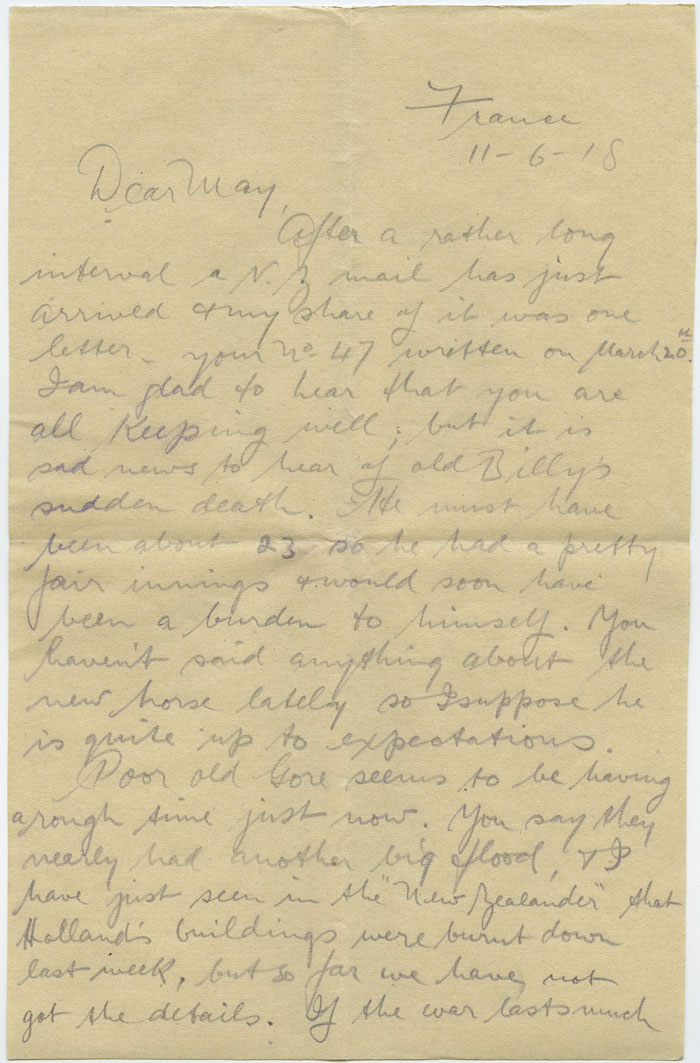 France
11-6-18
Dear May,
After a rather long
interval a N.Z mail has just
arrived & my share of it was one
letter - your No 47 written on March 20th.
I am glad to hear that you are
all keeping well; but it is
sad news to hear of old Billy's
sudden death. He must have
been about 23 so he had a pretty
fair innings & would soon have
been a burden to himself. You
haven't said anything about the
new horse lately so I suppose he
is quite up to expectations.
Poor old Gore seems to be having
a rough time just now. You say they
nearly had another big flood, & I
have just seen in the "New Zealander" that
Holland's buildings were burnt down
last week, but so far we have not
got the details. If the war lasts much